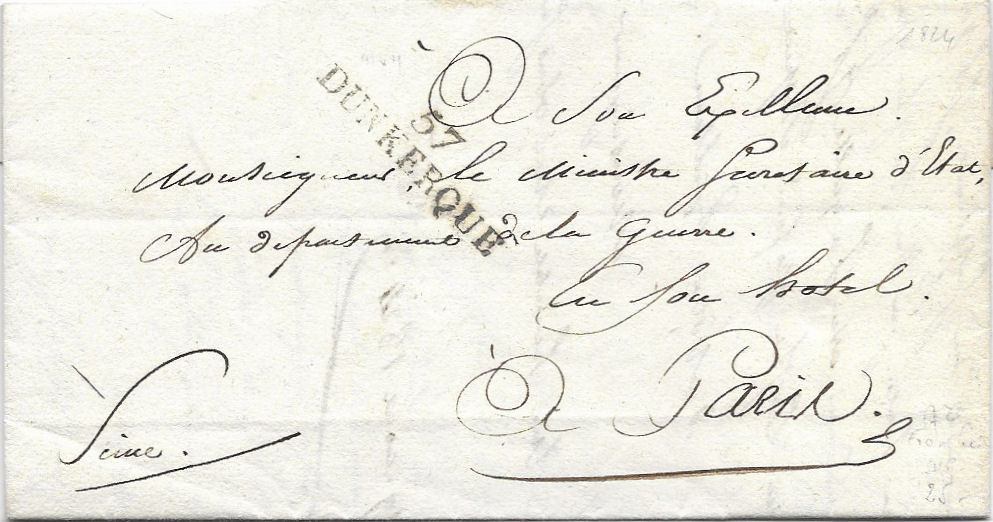 1824
57
DUNKERQUE
À Son Excellence.
Monseigneur, le Ministre Secretaire d'Etat,
Au département de la Guerre.
En son hotel.
À Paris.
Seine.
25